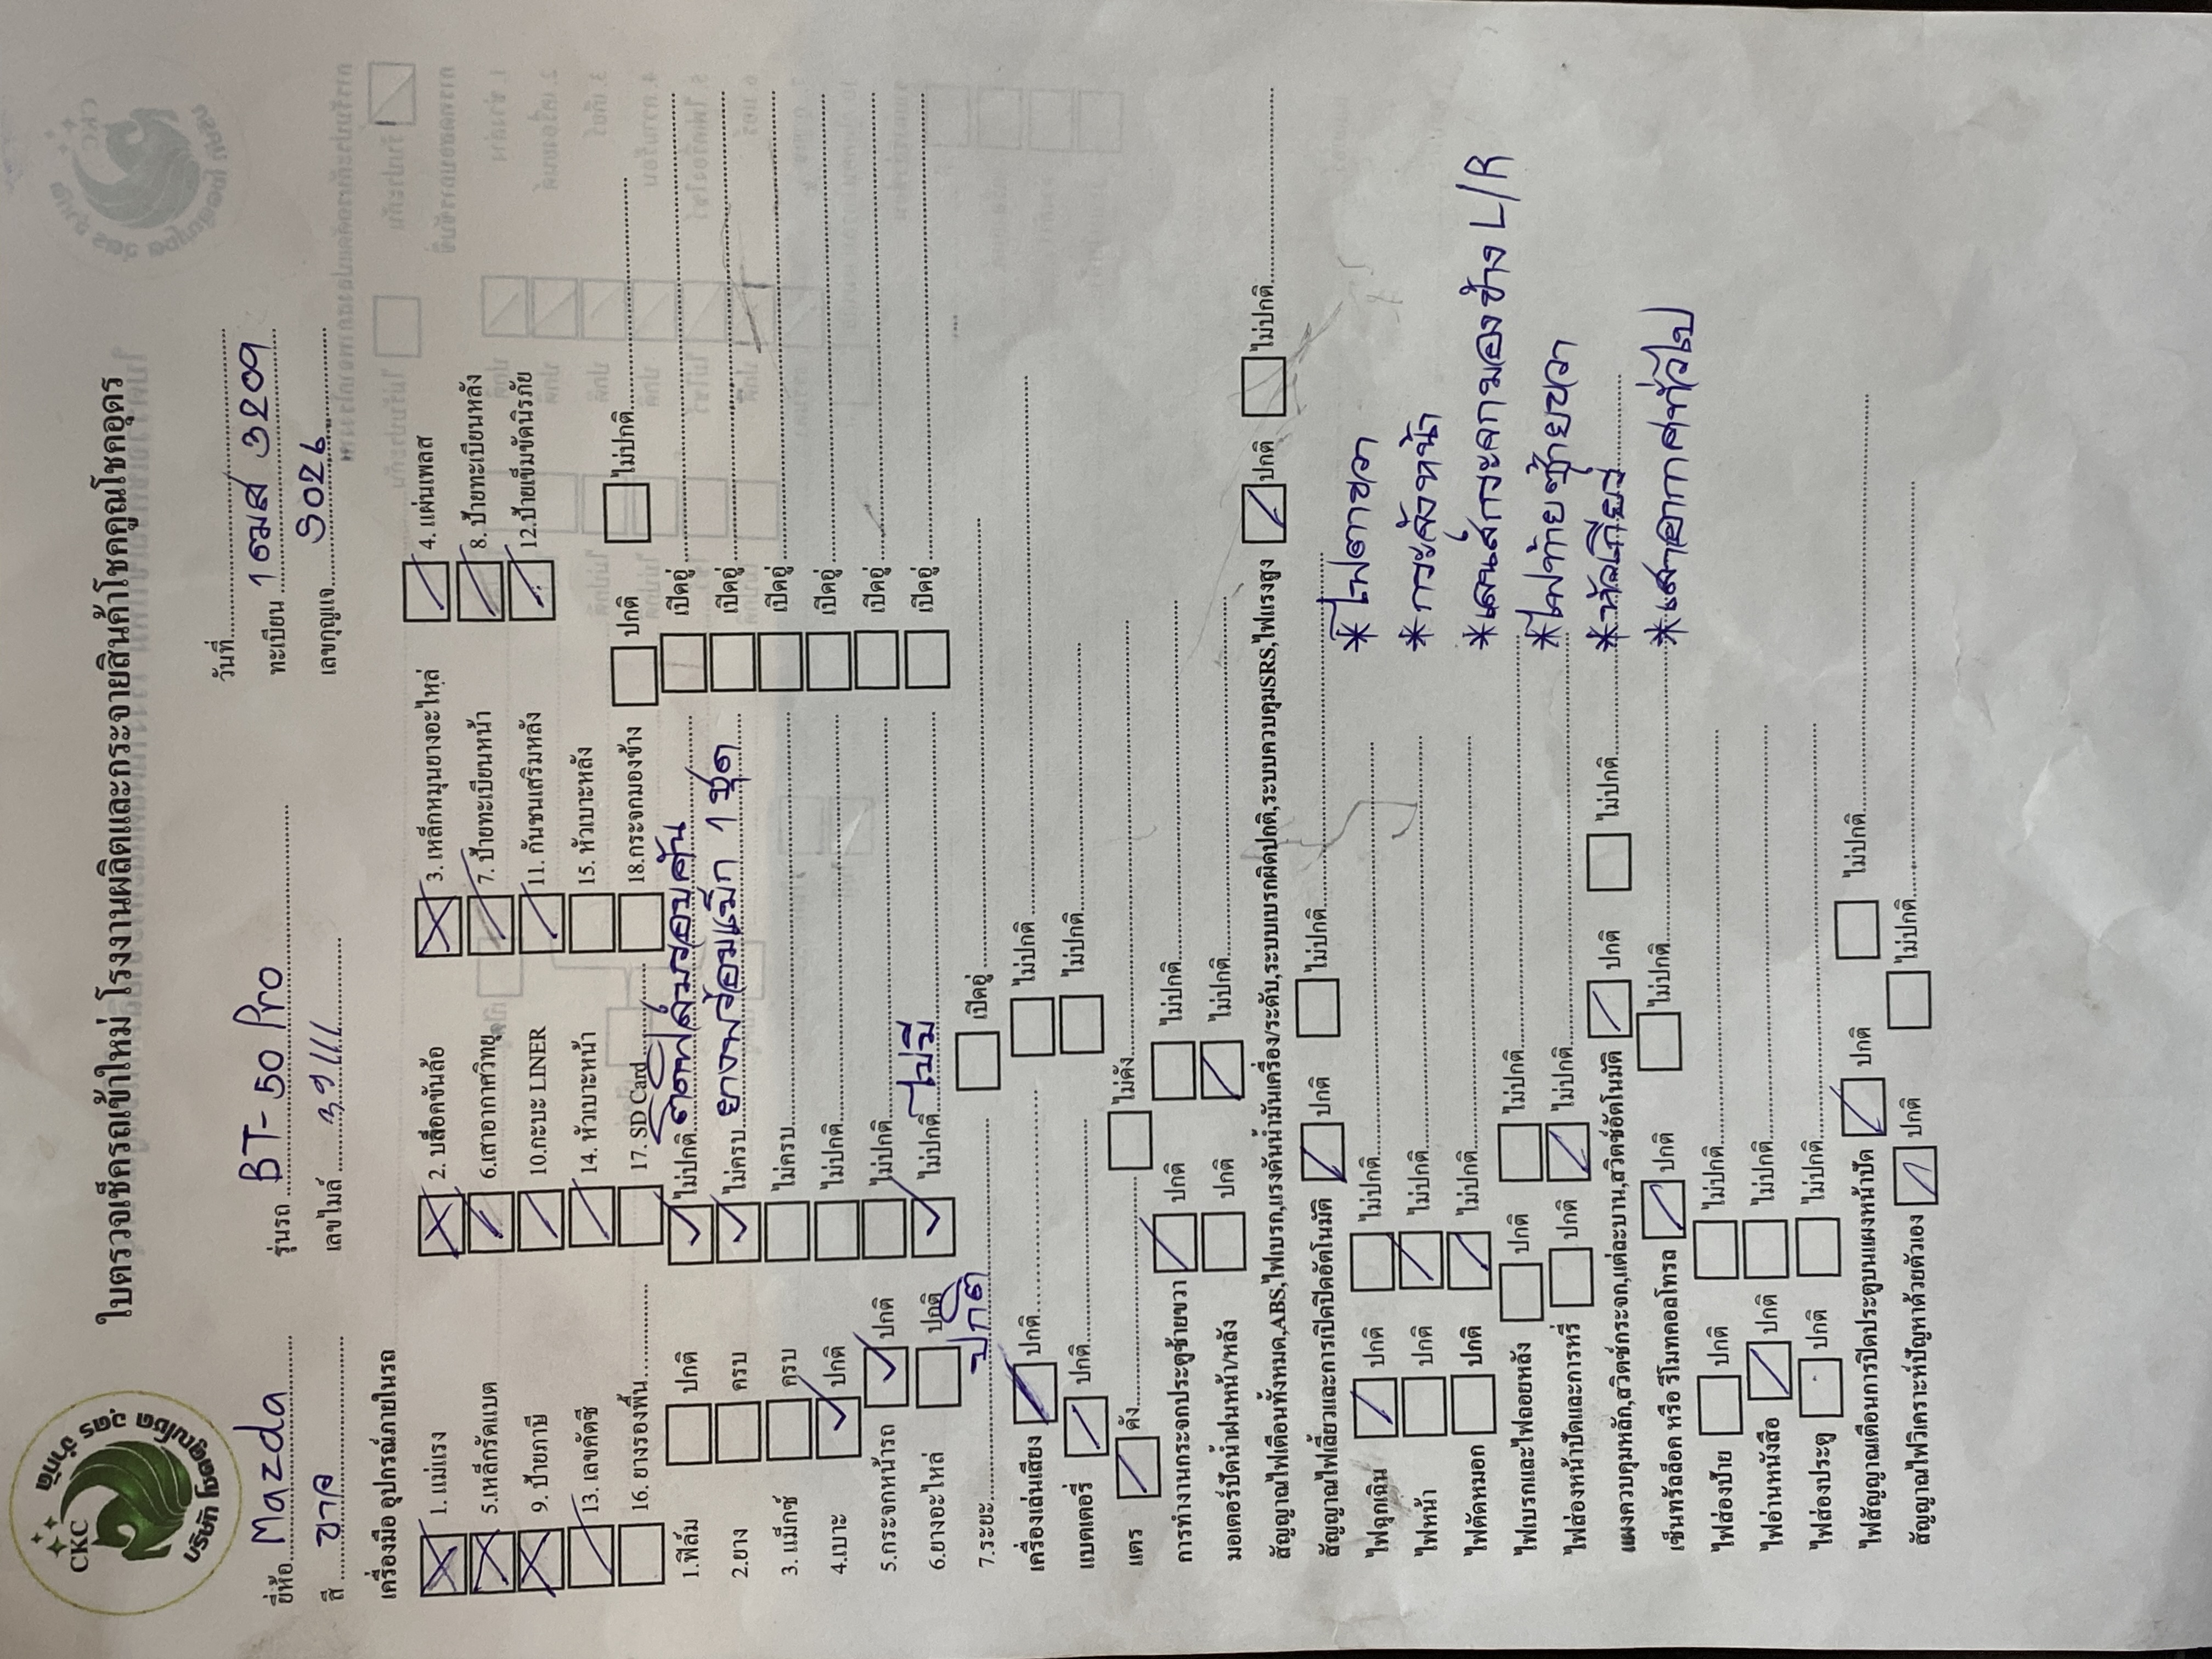 CKC
บริษัท โชคคูณโชค อุดร จำกัด
ใบตรวจเช็ครถเข้าใหม่ โรงงานผลิตและกระจายสินค้าโชคคูณโชคอุดร
วันที่
ยี่ห้อ Mazda รุ่นรถ BT-50 Pro ทะเบียน 1ฒส 3209
สี ขาว เลขไมล์ เลขกุญแจ S026
เครื่องมือ อุปกรณ์ภายในรถ
1. แม่แรง 2. บล็อคขันล้อ 3. เหล็กหมุนยางอะไหล่ 4. แผ่นเพลส
5.เหล็กรัดแบต 6.เสาอากาศวิทยุ 7. ป้ายทะเบียนหน้า 8. ป้ายทะเบียนหลัง
9. ป้ายภาษี 10.กะบะ LINER 11. กันชนเสริมหลัง 12.ป้ายเข็มขัดนิรภัย
13. เลขคัตซี 14. หัวเบาะหน้า 15. หัวเบาะหลัง
16. ยางรองพื้น 17. SD Card 18.กระจกมองข้าง ปกติ ไม่ปกติ
1.ฟิล์ม ปกติ ไม่ปกติ ติดฟิล์มรอบคัน เปิดอู่
2.ยาง ครบ ไม่ครบ ยางพร้อมแม็ก 1 ชุด เปิดอู่
3. แม็กซ์ ครบ ไม่ครบ เปิดอู่
4.เบาะ ปกติ ไม่ปกติ เปิดอู่
5.กระจกหน้ารถ ปกติ ไม่ปกติ เปิดอู่
6.ยางอะไหล่ ปกติ ไม่ปกติ ไม่มี เปิดอู่
7.ระยะ ปกติ เปิดอู่
เครื่องเล่นเสียง ปกติ ไม่ปกติ
แบตเตอรี่ ปกติ ไม่ปกติ
แตร ดัง ไม่ดัง
การทำงานกระจกประตูซ้ายขวา ปกติ ไม่ปกติ
มอเตอร์ปัดน้ำฝนหน้า/หลัง ปกติ ไม่ปกติ
สัญญาณไฟเตือนทั้งหมด,ABS,ไฟเบรก,แรงดันน้ำมันเครื่อง/ระดับ,ระบบเบรกผิดปกติ,ระบบควบคุมSRS,ไฟแรงสูง ปกติ ไม่ปกติ
สัญญาณไฟเลี้ยวและการเปิดปิดอัตโนมัติ ปกติ ไม่ปกติ
ไฟฉุกเฉิน ปกติ ไม่ปกติ *ไฟตาขวา
ไฟหน้า ปกติ ไม่ปกติ *กระจังหน้า
ไฟตัดหมอก ปกติ ไม่ปกติ *เลนส์กระจกมองข้าง L/R
ไฟเบรกและไฟถอยหลัง ปกติ ไม่ปกติ *ไฟท้ายซ้ายขวา
ไฟส่องหน้าปัดและการหรี่ ปกติ ไม่ปกติ *หัวเกียร์
แผงควบคุมหลัก,สวิตช์กระจก,แต่ละบาน,สวิตช์อัตโนมัติ ปกติ ไม่ปกติ
เซ็นทรัลล็อค หรือ รีโมทคอลโทรล ปกติ ไม่ปกติ *เสาอากาศทั่วไป
ไฟส่องป้าย ปกติ ไม่ปกติ
ไฟอ่านหนังสือ ปกติ ไม่ปกติ
ไฟส่องประตู ปกติ ไม่ปกติ
ไฟสัญญาณเตือนการปิดประตูบนแผงหน้าปัด ปกติ ไม่ปกติ
สัญญาณไฟวิเคราะห์ปัญหาด้วยตัวเอง ปกติ ไม่ปกติ